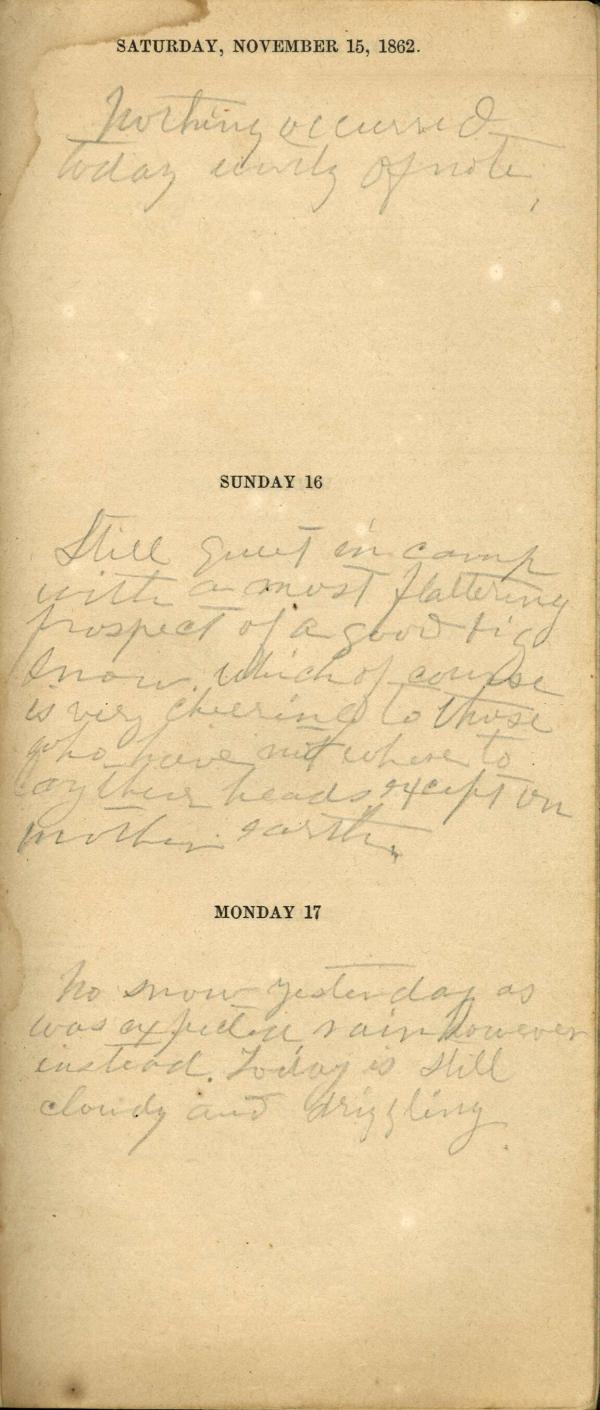 SATURDAY, NOVEMBER 15, 1862.
Nothing occurred
today worthy of note,
SUNDAY 16
Still quiet in camp
with a most flattering
prospect of a good big
snow. which of course
is very cheering to those
who have not where to
lay their heads except on
mother earth.
MONDAY 17
No snow yesterday as
was expected rain however
instead. Today is still
cloudy and drizzling